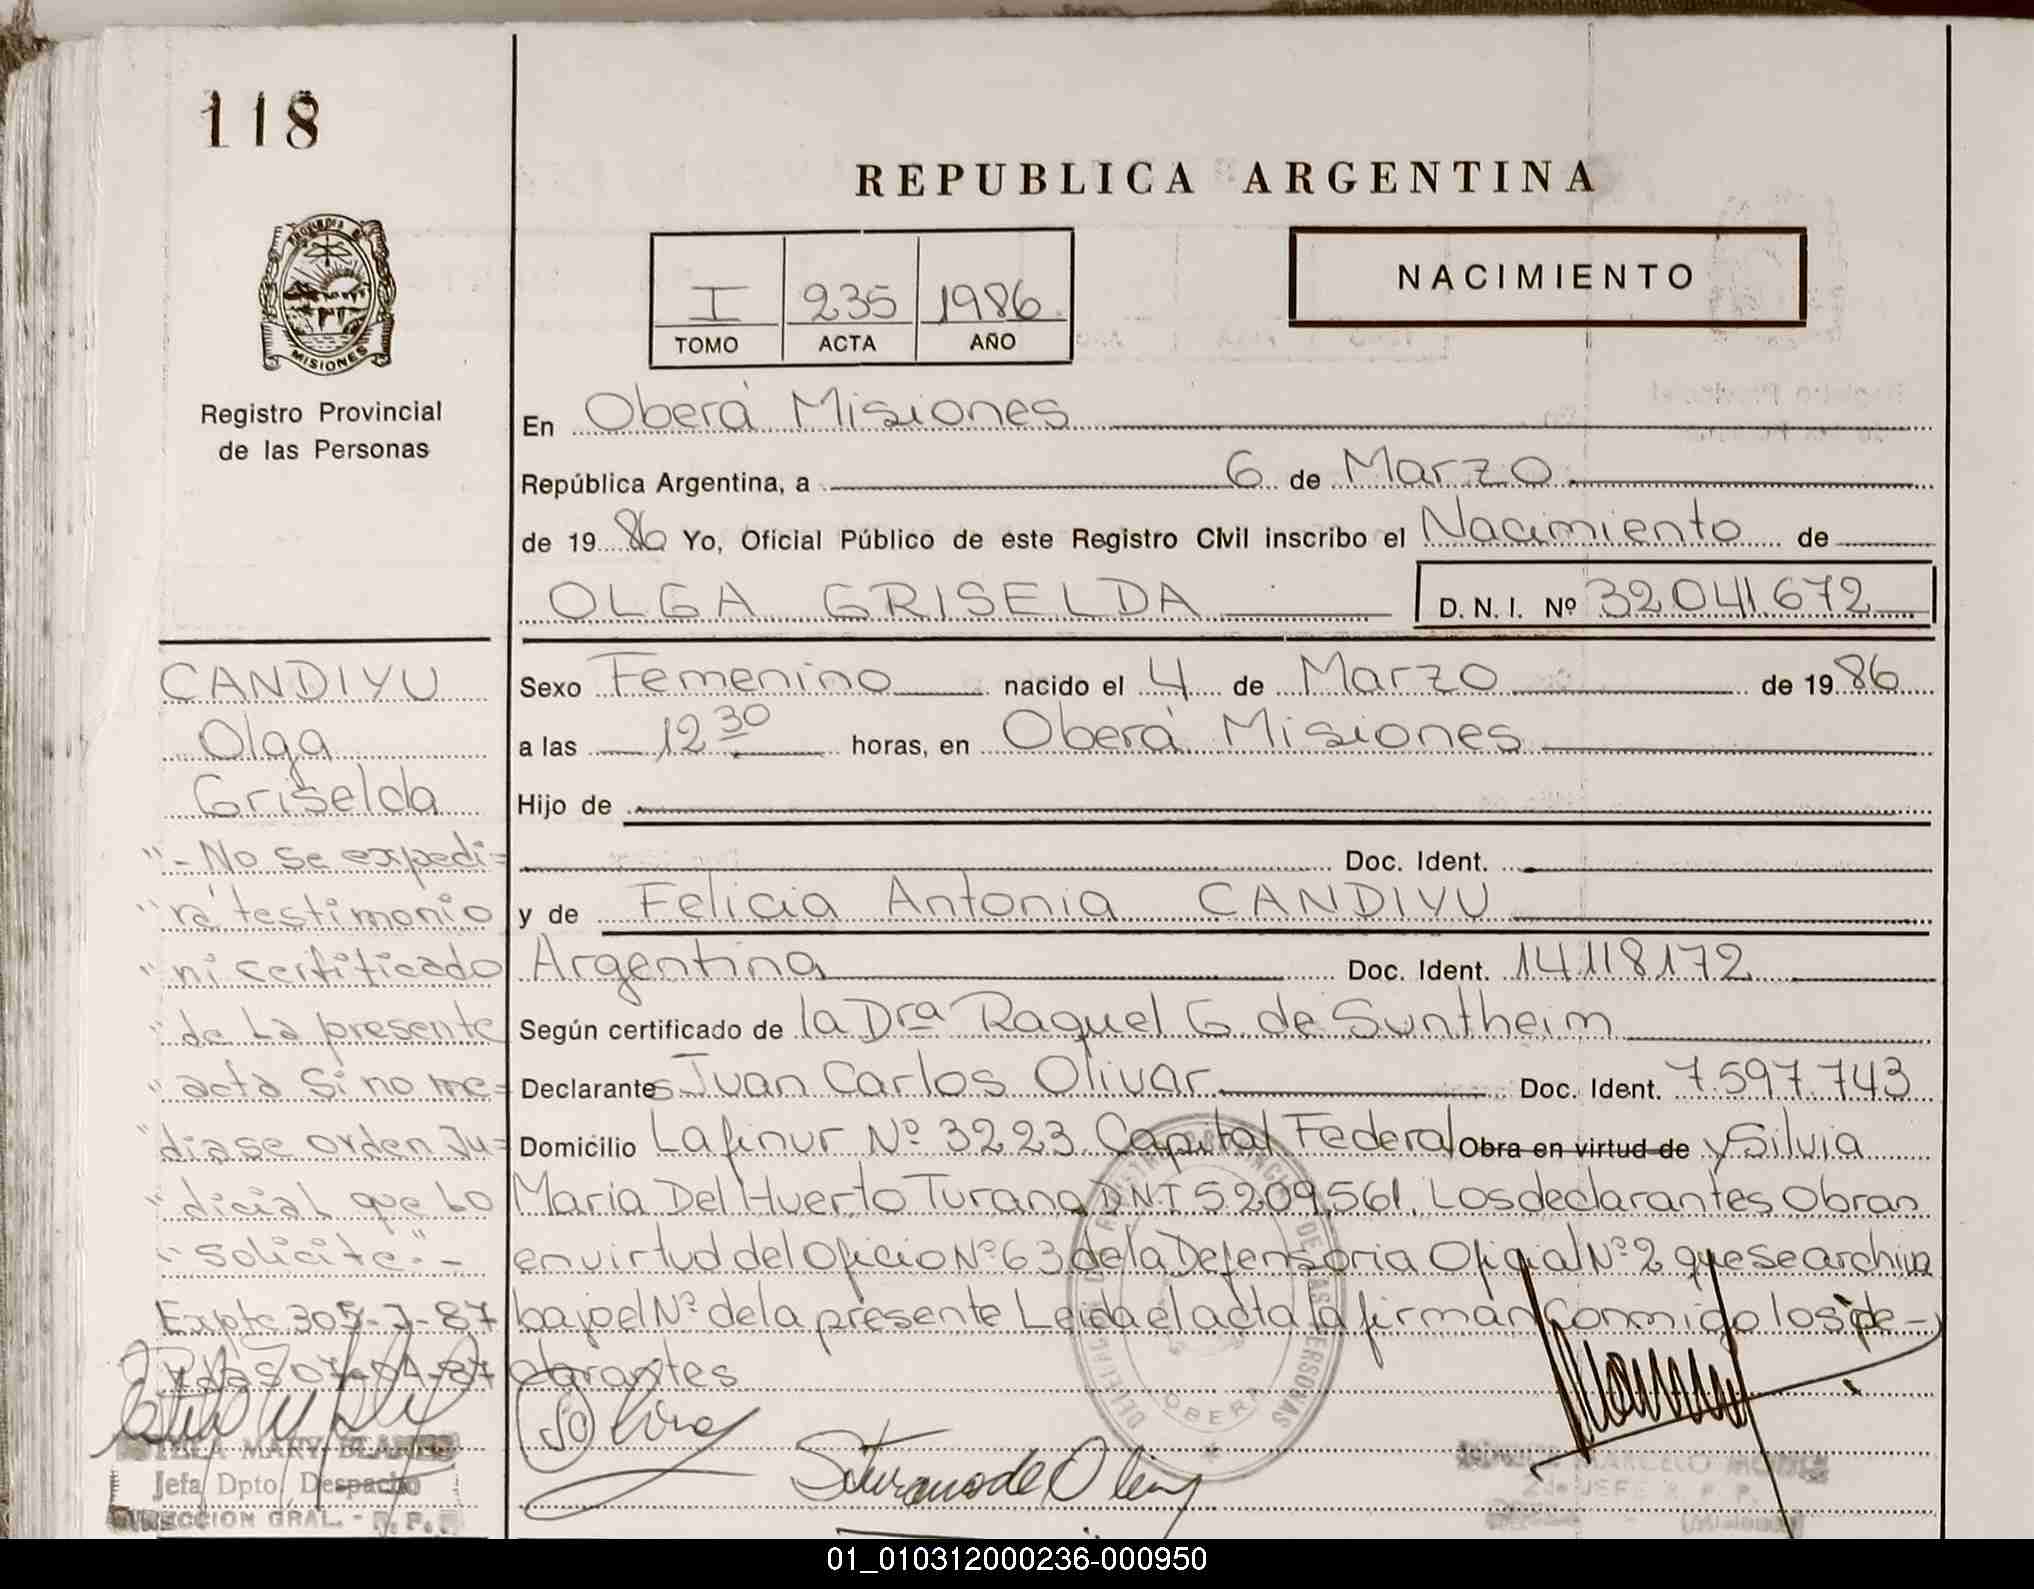 118
REPUBLICA ARGENTINA
NACIMIENTO
I 235 1986
TOMO ACTA AÑO
PROVINCIA DE
MISIONES
Registro Provincial
de las Personas
En Oberá Misiones
República Argentina, a 6 de Marzo
de 19 86 Yo, Oficial Público de este Registro Civil inscribo el Nacimiento de
OLGA GRISELDA D. N. I. Nº 32.041.672
CANDIYU
Olga
Griselda
"- No se expedi=
"rá testimonio
"ni certificado
"de la presente
"acta si no me=
"diase orden Ju=
"dicial que lo
"solicite."-
Expte 305-J-87
07-04-87
MARY BLANCO
Jefa Dpto. Despacho
DIRECCION GRAL. - R. P. P.
Sexo Femenino nacido el 4 de Marzo de 19 86
a las 12 30 horas, en Oberá Misiones
Hijo de
Doc. Ident.
y de Felicia Antonia CANDIYU
Argentina Doc. Ident. 14.118.172
Según certificado de la Dra Raquel G. de Suntheim
Declarantes Juan Carlos Olivar Doc. Ident. 7.597.743
Domicilio Lafinur Nº 3223 Capital Federal Obra en virtud de y Silvia
Maria Del Huerto Turano D.N.I 5.209.561. Los declarantes Obran
en virtud del Oficio Nº 63 de la Defensoria Oficial Nº 2 que se archiva
bajo el Nº de la presente Leida el acta la firman conmigo los de-
clarantes
OBERA
MARCELO
2do JEFE R. P. P.
01_010312000236-000950